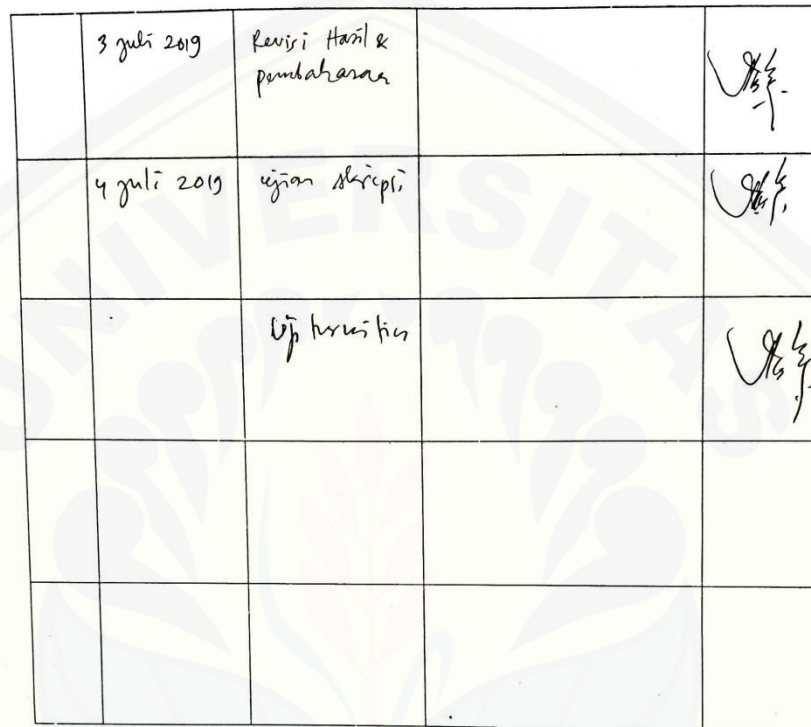 3 Juli 2019
Revisi Hasil &
pembahasan
4 Juli 2019
ujian skripsi
UNIVERSITAS